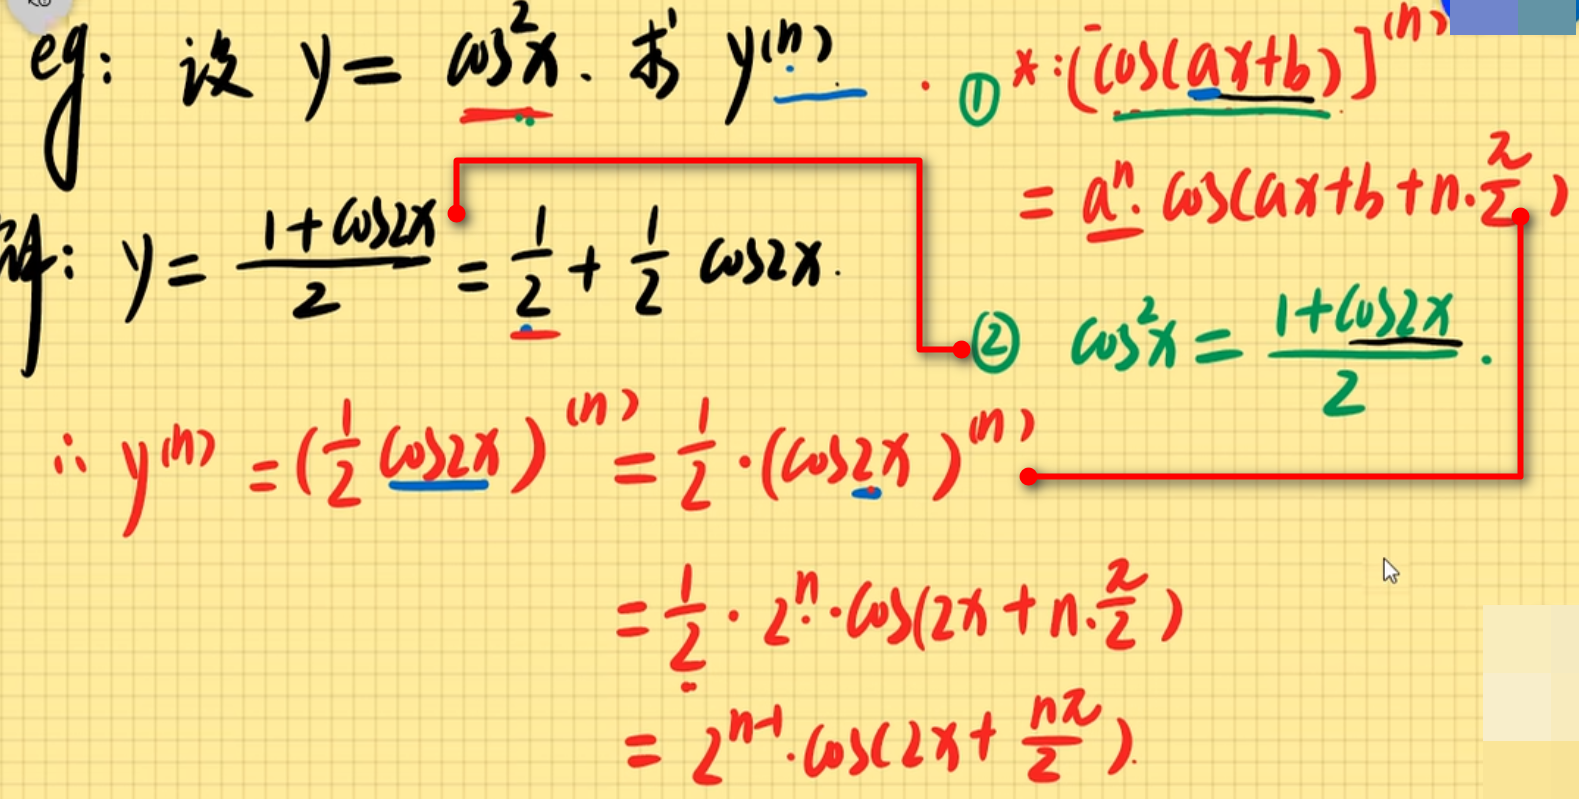 eg: 设 y = cos²x. 求 y⁽ⁿ⁾.
① *: [cos(ax+b)]⁽ⁿ⁾
= aⁿ· cos(ax+b+n·π/2)
解: y = (1+cos2x)/2 = 1/2 + 1/2 cos2x.
② cos²x = (1+cos2x)/2.
∴ y⁽ⁿ⁾ = (1/2 cos2x)⁽ⁿ⁾ = 1/2 · (cos2x)⁽ⁿ⁾
= 1/2 · 2ⁿ · cos(2x + n·π/2)
= 2ⁿ⁻¹ · cos(2x + nπ/2).